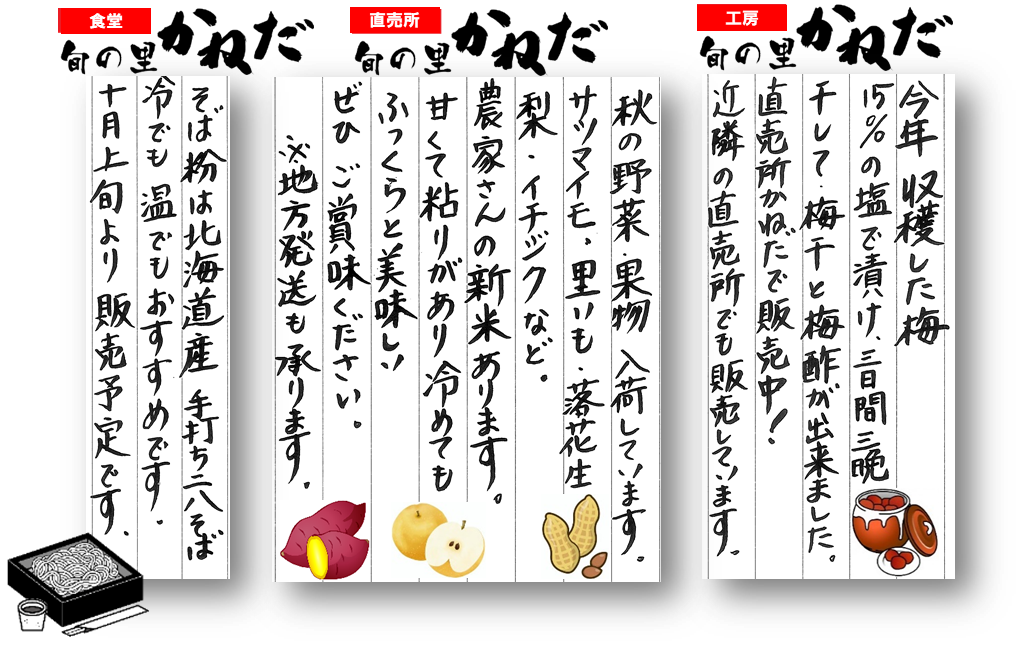 工房
旬の里 かねだ
今年 収穫した梅
15%の塩で漬け、三日間三晩
干して、梅干と梅酢が出来ました。
直売所かねだで販売中!
近隣の直売所でも販売しています。
直売所
旬の里 かねだ
秋の野菜・果物 入荷しています。
サツマイモ・里いも・落花生
梨・イチジクなど。
農家さんの新米あります。
甘くて粘りがあり冷めても
ふっくらと美味しい
ぜひ ご賞味ください。
※地方発送も承ります。
食堂
旬の里 かねだ
そば粉は北海道産 手打ち二八そば
冷でも温でもおすすめです。
十月上旬より販売予定です。